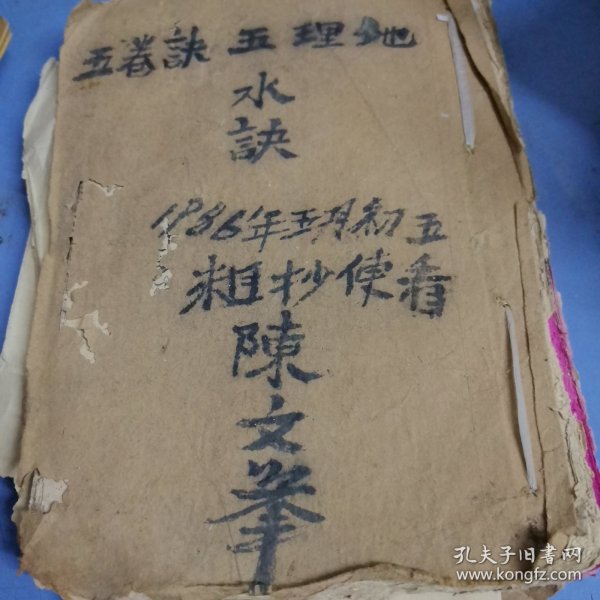 地理五訣五卷
水
訣
1986年五月初五
粗抄使看
陳文峯
孔夫子旧书网
www.kongfz.com